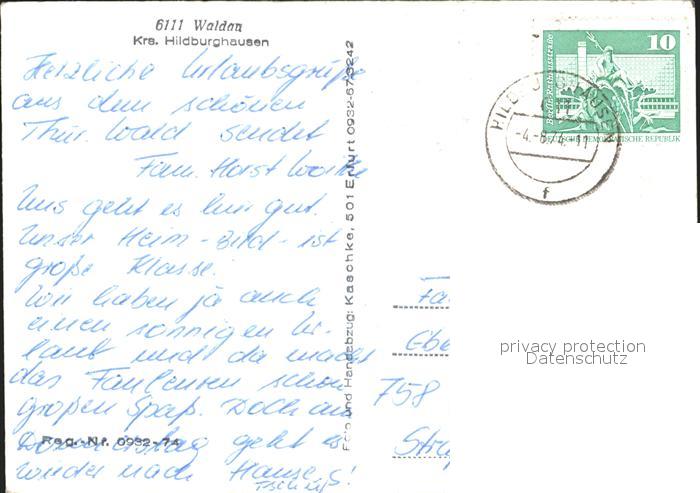 6111 Waldau
Krs. Hildburghausen
Herzliche Urlaubsgrüße
aus dem schönen
Thür. Wald sendet
Fam. Horst
Uns geht es hier gut.
Unser Heim-Bild-ist
große Klasse.
Wir haben ja auch
einen sonnigen Ur-
laub und da macht
das Faulenzen schon
großen Spaß. Doch am
Donnerstag geht es
wieder nach Hause.
Reg.-Nr. 0932-74
Foto und Handabzug: Kaschke, 501 Erfurt 0932-67/3242
10
Berlin, Rathausstraße
DEUTSCHE DEMOKRATISCHE REPUBLIK
HILDBURGHAUSEN
-4.-8.74-11
f
Fa
Ebe
758
Stra
privacy protection
Datenschutz